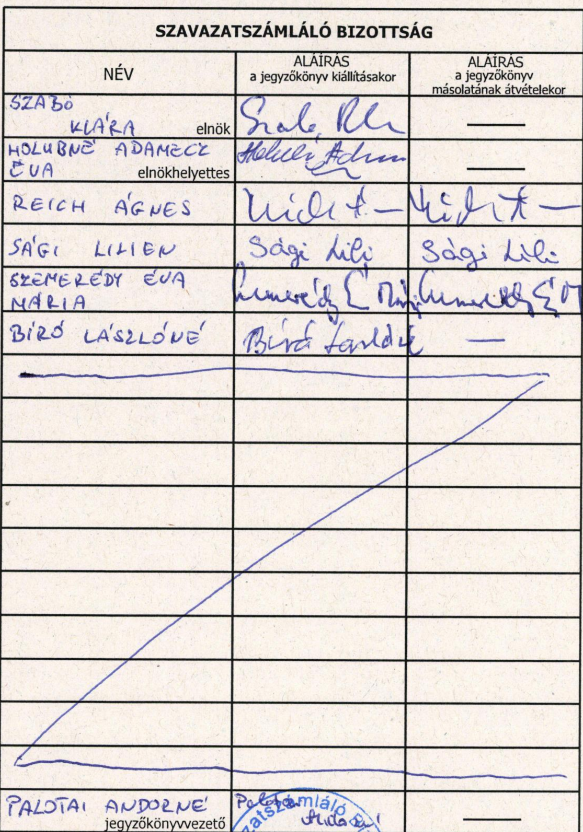 SZAVAZATSZÁMLÁLÓ BIZOTTSÁG
NÉV
ALÁÍRÁS
a jegyzőkönyv kiállításakor
ALÁÍRÁS
a jegyzőkönyv
másolatának átvételekor
SZABÓ
KLÁRA elnök
HOLUBNÉ ADAMECZ
ÉVA elnökhelyettes
REICH ÁGNES
SÁGI LILIEN Sági Lili Sági Lili
SZEMERÉDY ÉVA
MÁRIA
BÍRÓ LÁSZLÓNÉ
PALOTAI ANDORNÉ
jegyzőkönyvvezető